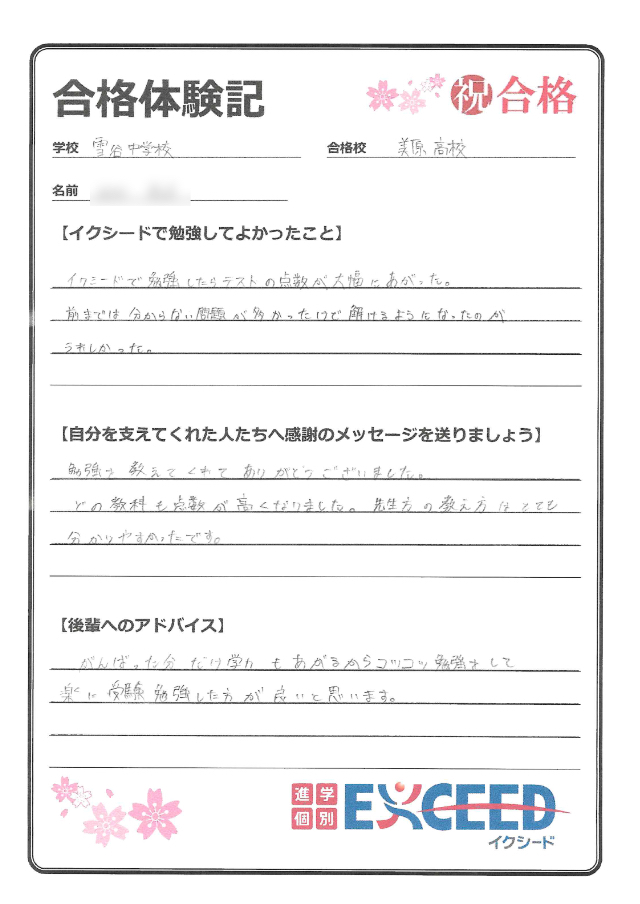 合格体験記
祝 合格
学校 雪谷中学校
合格校 美原高校
名前
【イクシードで勉強してよかったこと】
イクシードで勉強したらテストの点数が大幅にあがった。
前までは分からない問題が多かったけど解けるようになったのが
うれしかった。
【自分を支えてくれた人たちへ感謝のメッセージを送りましょう】
勉強を教えてくれてありがとうございました。
どの教科も点数が高くなりました。先生方の教え方はとても
分かりやすかったです。
【後輩へのアドバイス】
がんばった分だけ学力もあがるからコツコツ勉強をして
楽に受験勉強した方が良いと思います。
進学
個別
EXCEED
イクシード